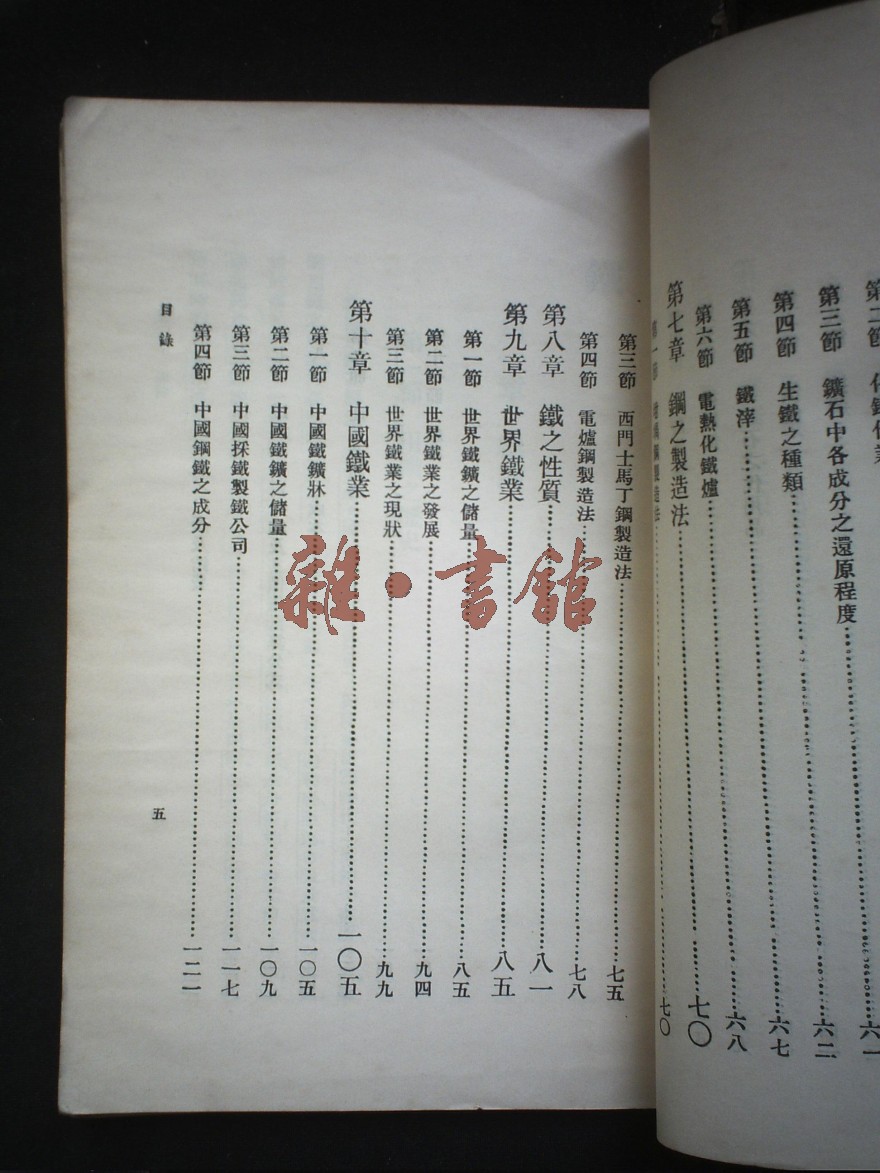 第三節 鑛石中各成分之還原程度 六二
第四節 生鐵之種類 六七
第五節 鐵滓 六八
第六節 電熱化鐵爐
第七章 鋼之製造法 七〇
七〇
第三節 西門士馬丁鋼製造法 七五
第四節 電爐鋼製造法 七八
第八章 鐵之性質 八一
第九章 世界鐵業 八五
第一節 世界鐵鑛之儲量 八五
第二節 世界鐵業之發展 九四
第三節 世界鐵業之現狀 九九
第十章 中國鐵業 一〇五
第一節 中國鐵鑛牀 一〇五
第二節 中國鐵鑛之儲量 一〇九
第三節 中國採鐵製鐵公司 一一七
第四節 中國鋼鐵之成分 一二一
目錄
五
雜·書館